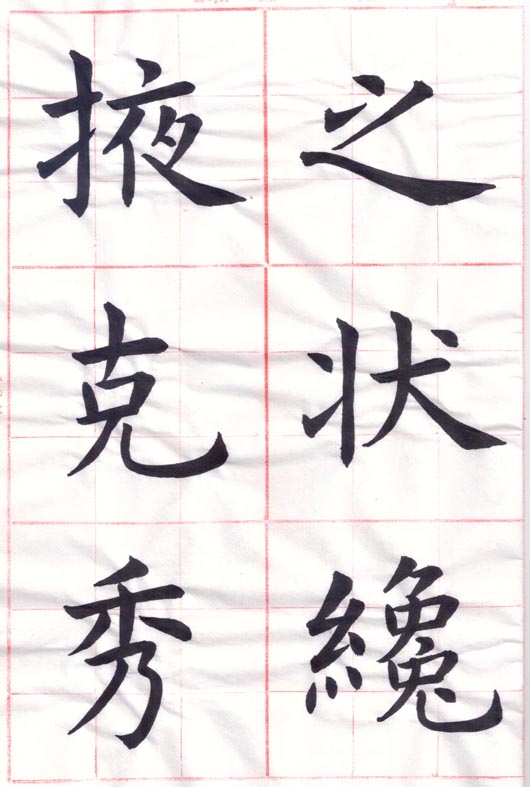 之状纔
掖克秀